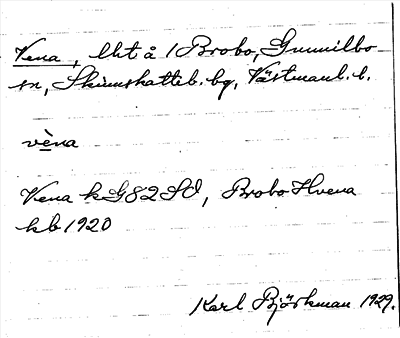 Vena, lht å 1 Brobo, Gunnilbo
sn, Skinnskatteb. bg, Västmanl. l.
vèna
Vena k G82SO, Brobo Hvena
kb 1920
Karl Björkman 1929.